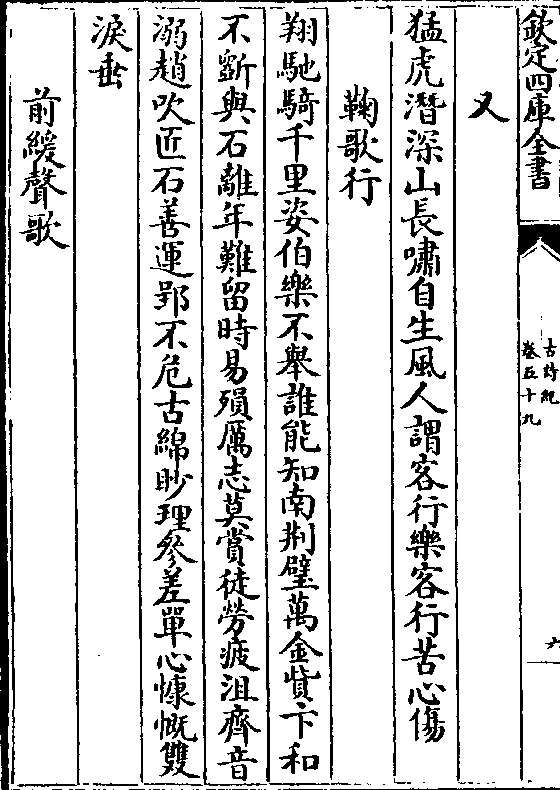 欽定四庫全書
古詩紀
卷五十九
六
又
猛虎潛深山長嘯自生風人謂客行樂客行苦心傷
鞠歌行
翔馳騎千里姿伯樂不舉誰能知南荆璧萬金貲卞和
不斵與石離年難留時易殞厲志莫賞徒勞疲沮齊音
溺趙吹匠石善運郢不危古綿眇理參差單心慷慨雙
淚垂
前緩聲歌